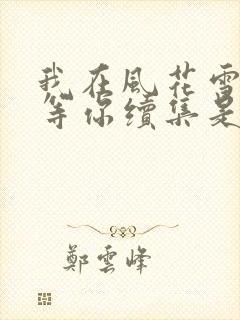 我在風花雪
等你續集是
鄭雲峰